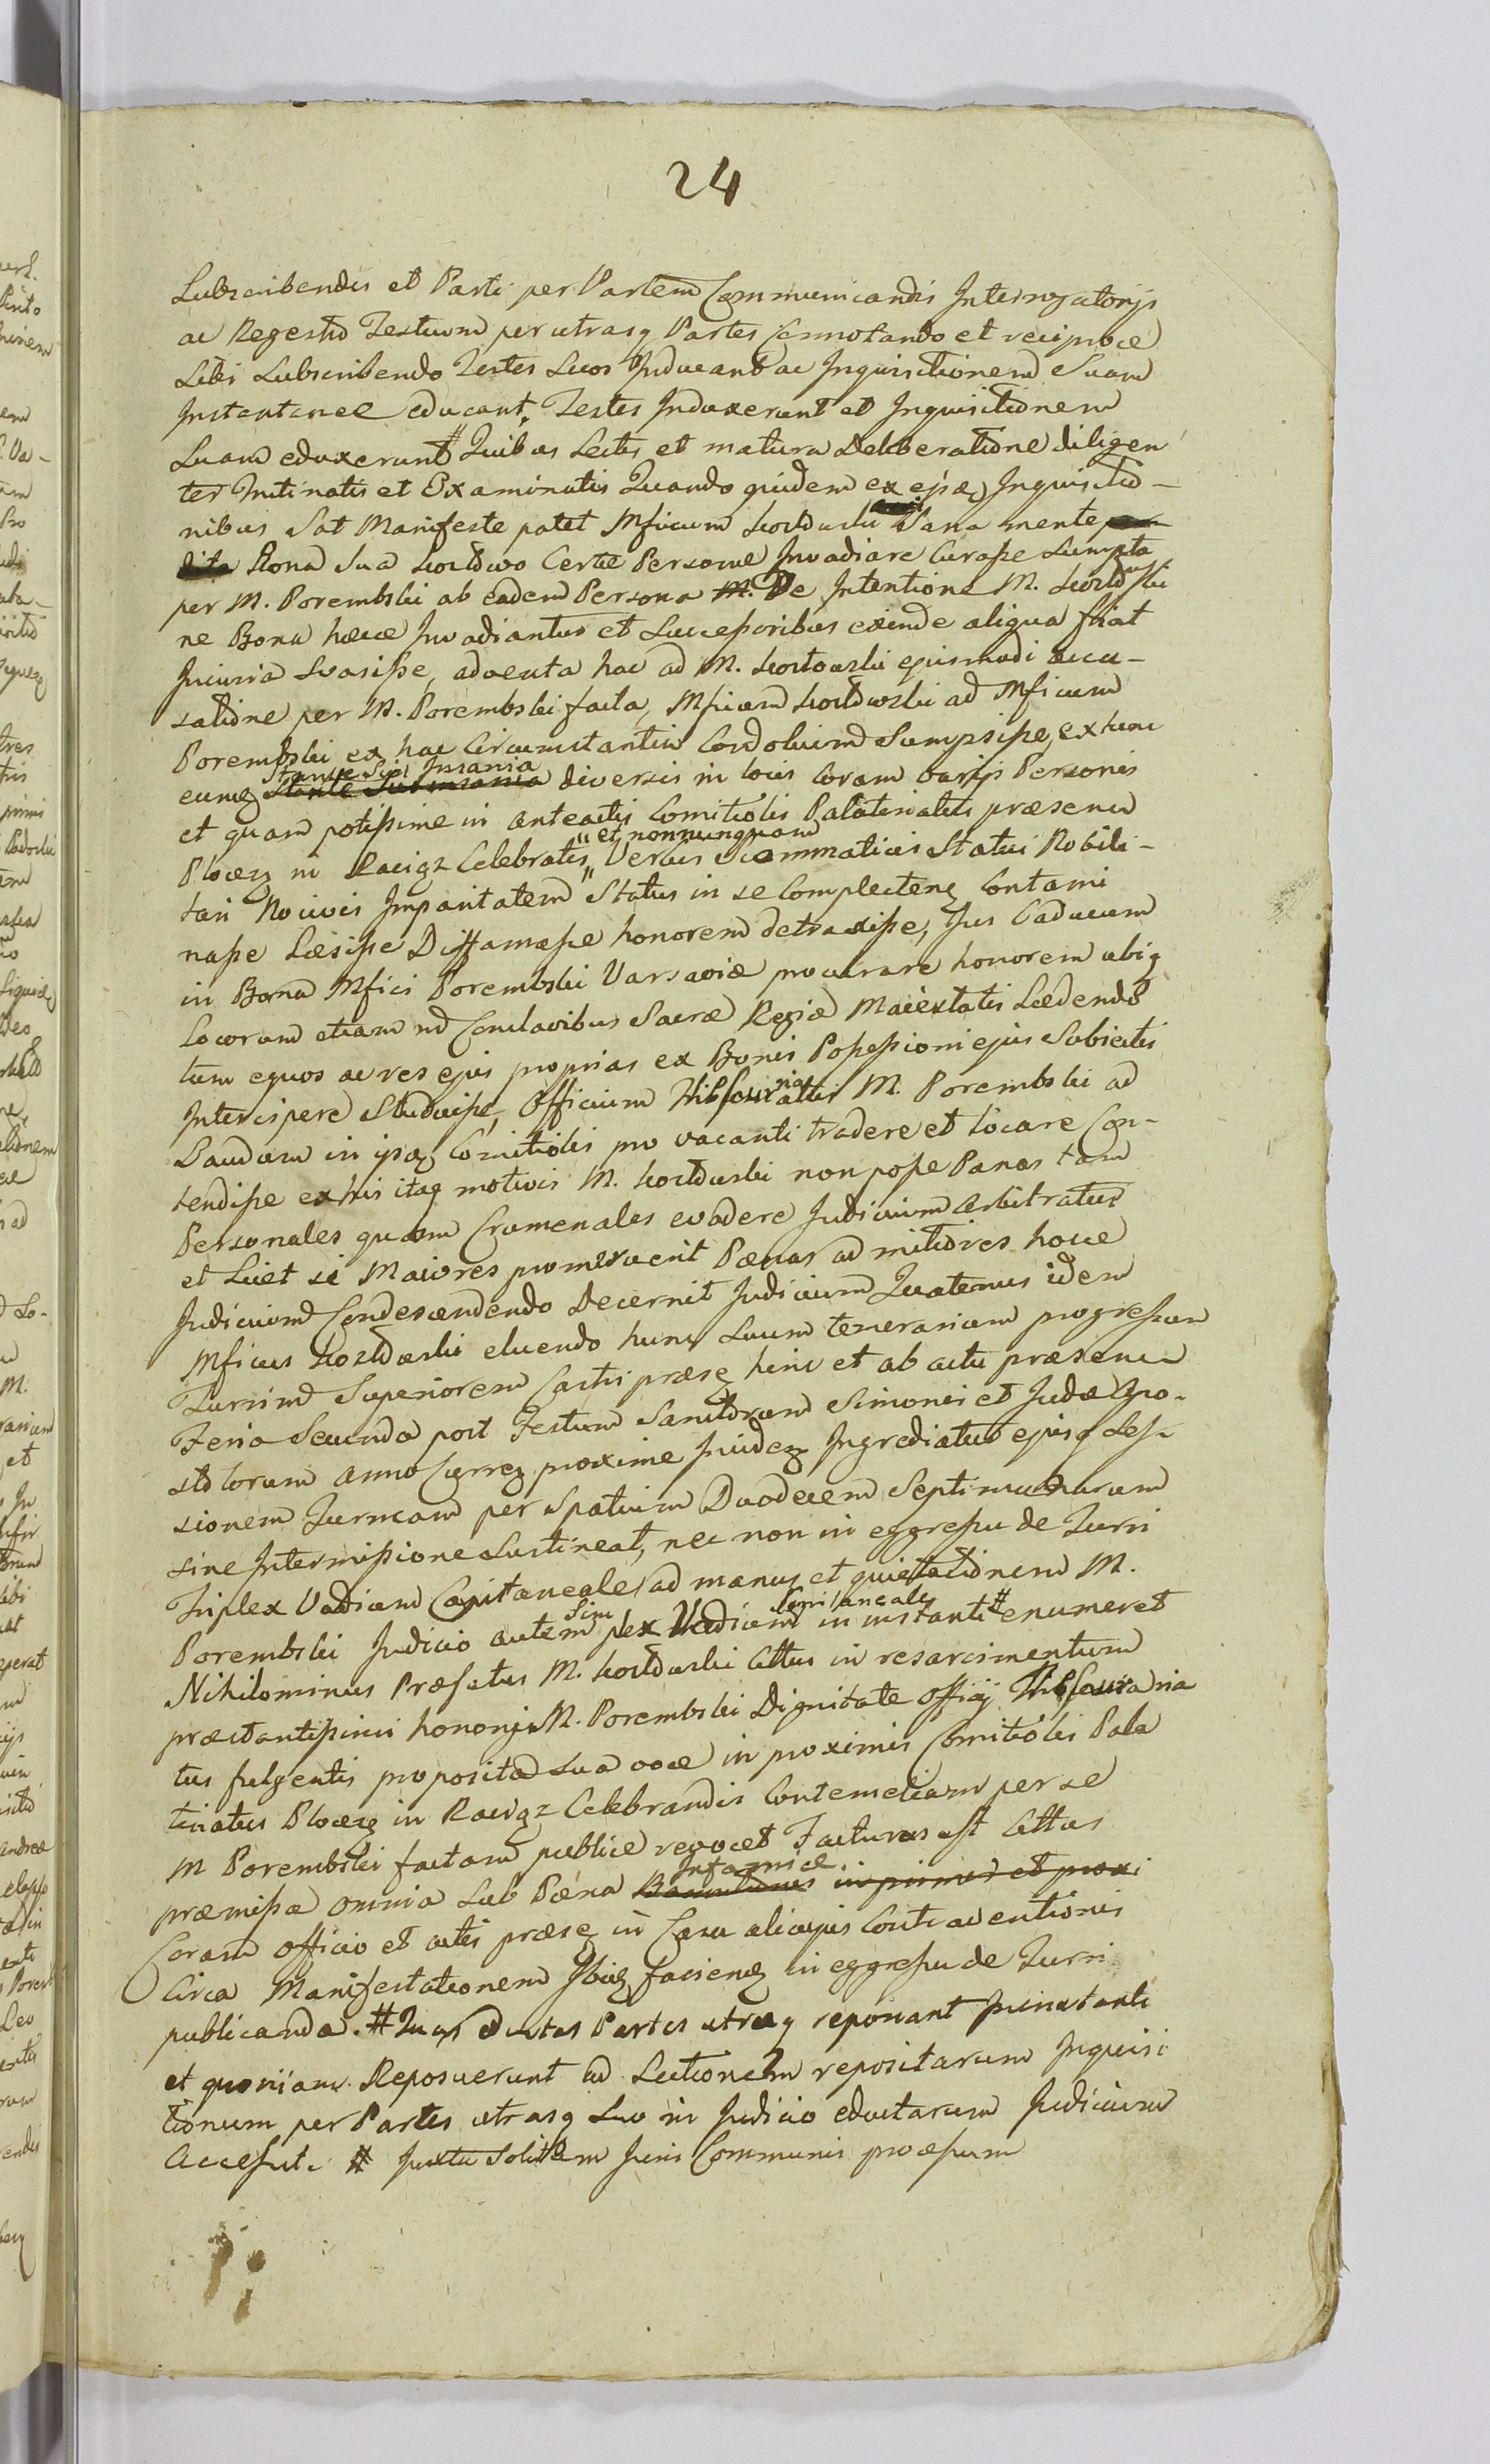 24
Subscribendis et Parti per Partem Communicandis Interrogatorijs
ac Regestro Testium per utrasq Partes Connotando et reciproce
Sibi Subscribendo Testes Suos Inducant ac Inquisitionem Suam
Instantanee educant, Testes Induxerunt et Inquisitionem
Suam eduxerunt # Quibus Lectis et matura Deliberatione diligen
ter Trutinatis et Examinatis Quando quidem ex ejsq Inquisitio-
nibus Sat Manifeste patet Mficum Kozłowski Sana mente
Bona Sua Kozłowo Certæ Personæ Invadiare Curasse Sumpta
per M. Porembski ab eadem Persona M. De Intentione M. Kozłowski
ne Bona hæcce Invadiantur et Successoribus exinde aliqua fiat
Iniuria Svasisse, advecta hac ad M. Kozłowski ejusmodi accu-
satione per M. Porembski facta, Mficum Kozłowski ad Mficum
Porembski ex hac Circumstantia Cordolium Sumpsisse, ex tunc
Stante Sui Insania
eumq Stante Sui Insania diversis in locis Coram varijs Personis
et quam potissime in anteactis Comitiolis Palatinatus præsenu
" et nonnunquam
Ploceq in Raciąz Celebratis " Verbis Scommaticis Statui Nobili-
tari Nocivis Imparitatem Status in se Complectenq Contami
nasse Læsisse Diffamasse honorem detraxisse, Jus Caducum
in Bona Mfici Porembski Varsaviæ procurare honorem ubiq
Locorum etiam in Conclavibus Sacræ Regiæ Maiestatis Lædendo
tum equos ac res ejus proprias ex Bonis Possessioni ejus Subiectis
Intercipere Studuisse, Officium Thesaurariatus M. Porembski ad
Laudum in ipsq Comitiolis pro vacanti tradere et locare Con-
tendisse ex his itaq motivis M. Kozłowski non posse Pænas tam
Personales quam Crumenales evadere Judicium Arbitratur
et Licet si Maiores promeruerit Pænas ad mitiores hocce
Judicium Condescendendo Decernit Judicium Quatenus idem
Mficus Kozłowski eluendo hunc Suum temerarium progressum
Turrim Superiorem Castri præsq hinc et ab actu præsenu
Feria Secunda post Festum Sanctorum Simonis et Judæ Apo-
stolorum Anno Curreq proxime Inideq Ingrediatur ejusq Ses-
sionem Turrneam per Spatium Duodecem Septimanarum
sine Intermissione Sustineat, nec non in eggressu de Turri
Triplex Vadium Capitaneale ad manus et quietationem M.
Porembski Judicio autem Simplex Vadium Capitaneale in instanti # enumeret
Nihilominus Præfatus M. Kozłowski Actus in resarcimentum
præstantissimi honoris M. Porembski Dignitate Officij Thesauraria
tus fulgentis proposita sua voce in proximis Comitiolis Pala
tinatus Ploceq in Raciąz Celebrandis Contumeliam per se
M Porembski factam publice revocet Facturus est Actus
præmissa omnia Sub Pæna Infamiæ in primis et proxi
Coram Officio et actis præsq in Casu alicujus Contraventionis
Circa Manifestationem Ibidq facienq in eggressu de Turri
publicanda. # Quas eductas Partes utræq reponant in instanti
et quoniam Reposuerunt ad Lectionem repositarum Inquisi
tionum per Partes utrasq Suo in Judicio eductarum Judicium
Accessit. # Juxta Solitam Juris Communis præssum